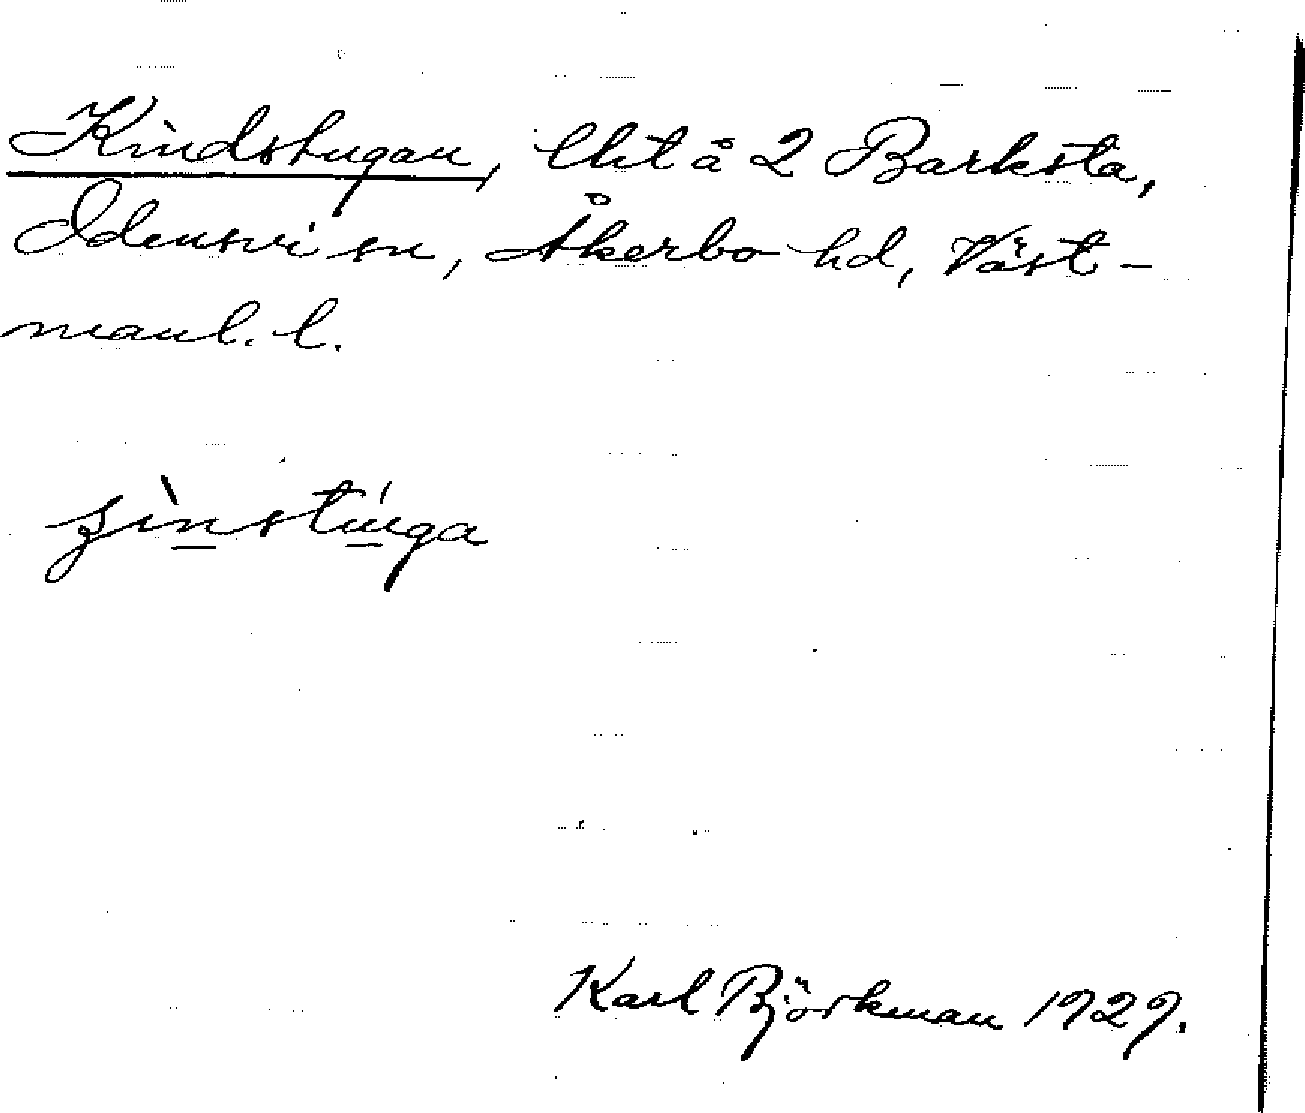 Kindstugan, lht å 2 Barksta,
Odensvi sn, Åkerbo hd, Väst-
manl. l.
Karl Björkman 1929.